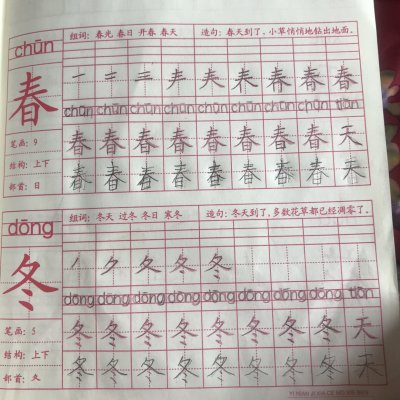 chūn
组词：春光 春日 开春 春天 造句：春天到了，小草悄悄地钻出地面。
春
一 二 三 春 春 春
chūn chūn chūn chūn chūn chūn chūn chūn tiān
春 春 春 春 春 春 春 春 天
笔画：9
结构：上下
部首：日
春 春 春 春 春 春 春 春 天
dōng
组词：冬天 过冬 冬日 寒冬 造句：冬天到了，多数花草都已经凋零了。
冬
丿 ク 夂 冬 冬
dōng dōng dōng dōng dōng dōng dōng dōng tiān
冬 冬 冬 冬 冬 冬 冬 冬 天
笔画：5
结构：上下
部首：夂
冬 冬 冬 冬 冬 冬 冬 冬 天